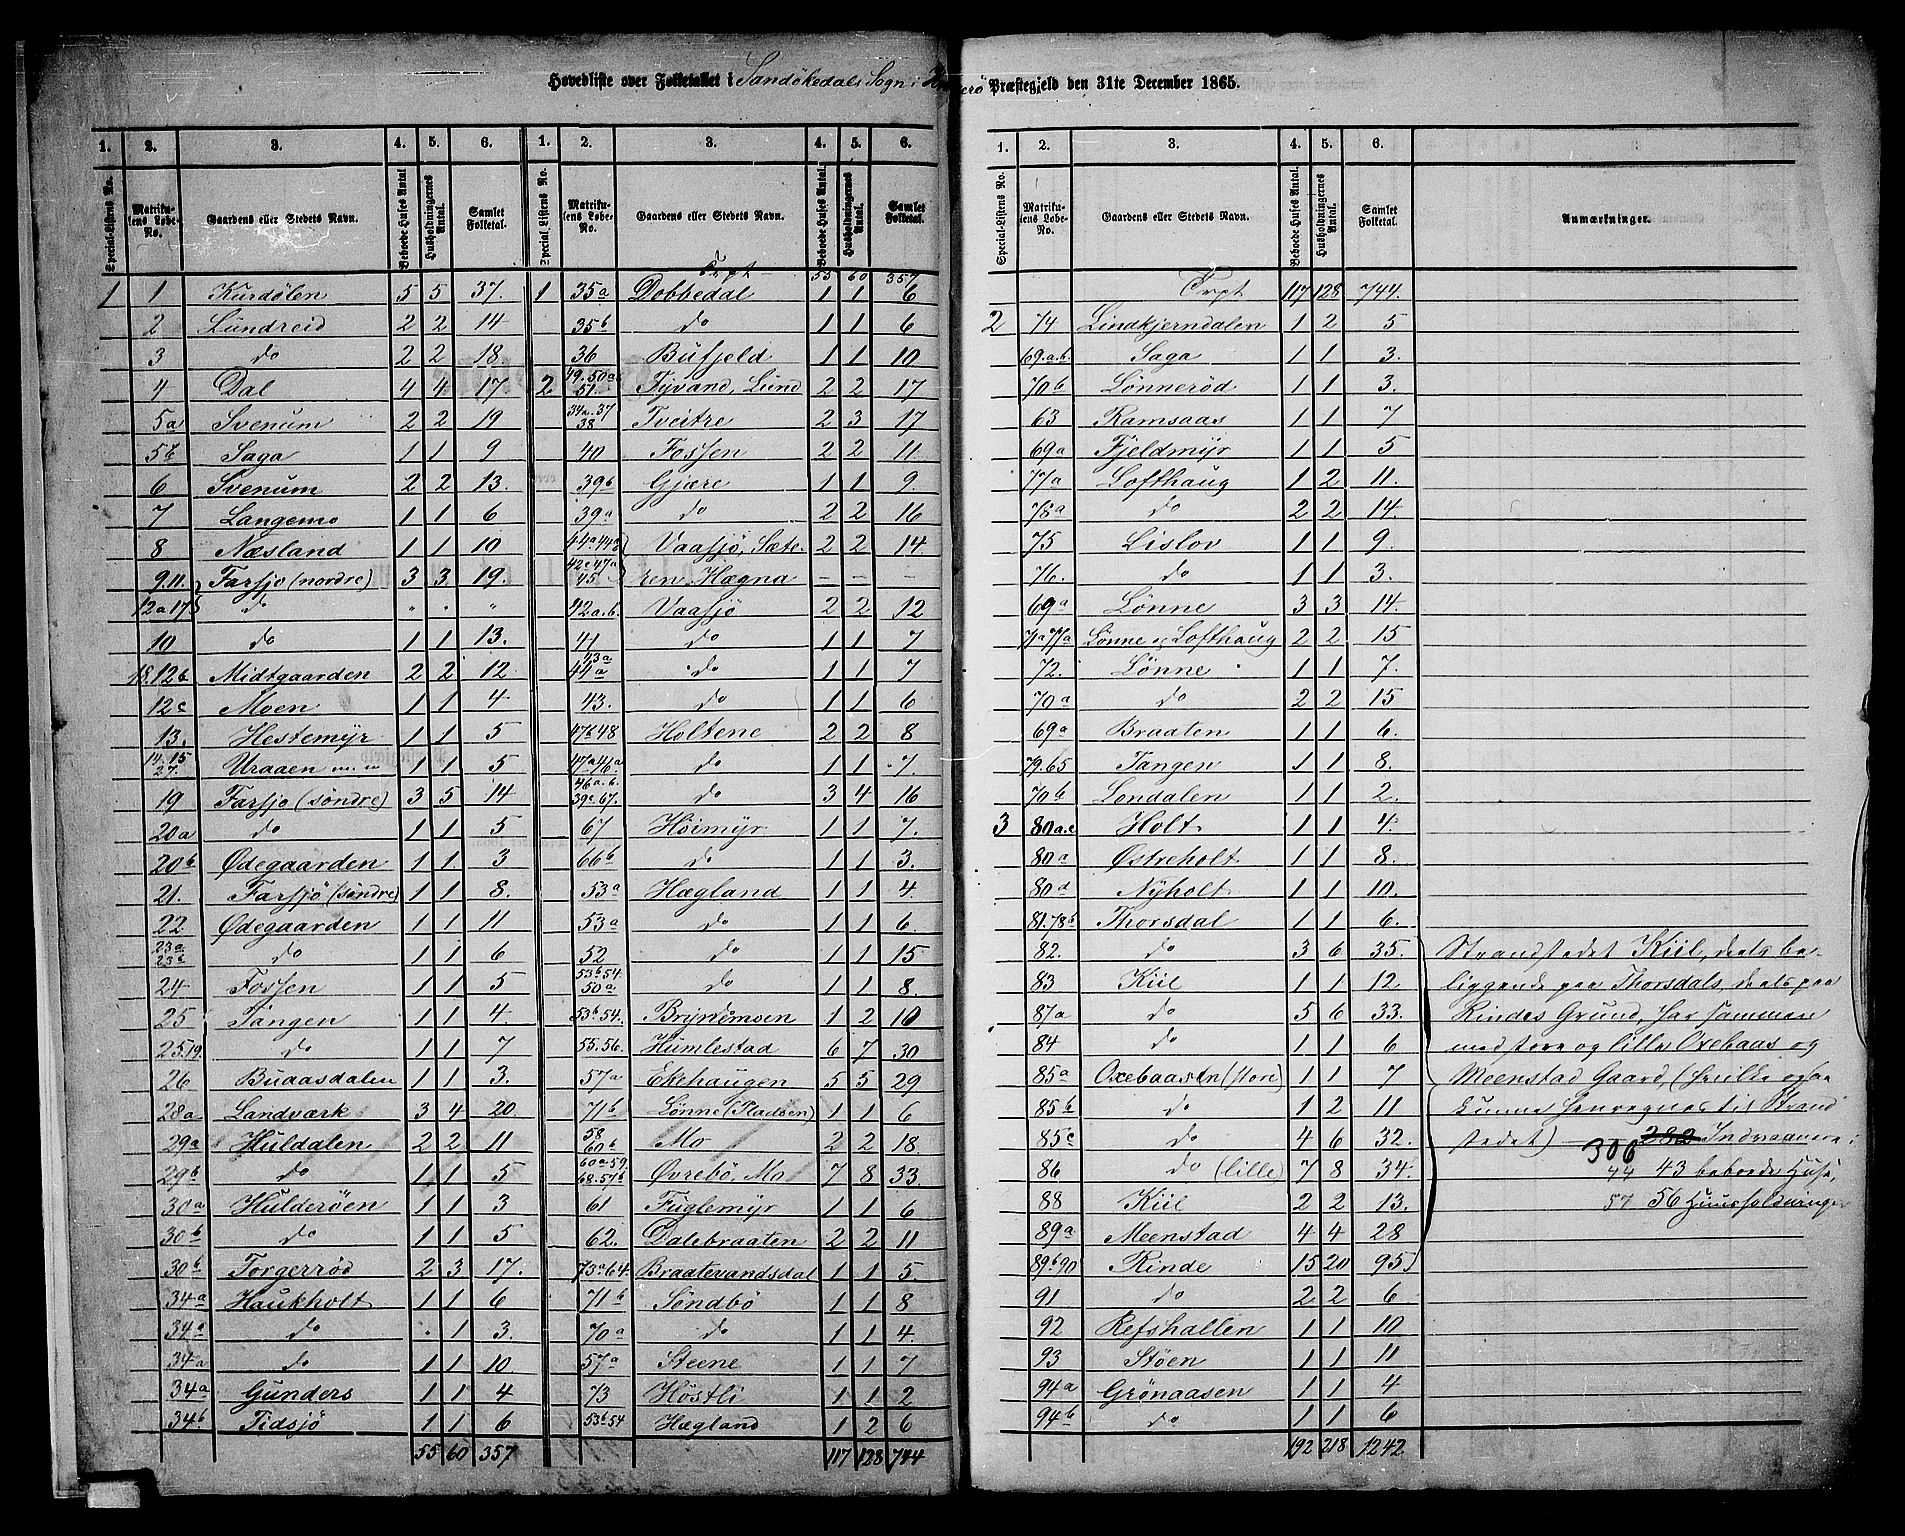 Hovedliste over Folketallet i Sandökedals Sogn i Præstegjeld den 31te December 1865.
1. 2. 3. 4. 5. 6. 1. 2. 3. 4. 5. 6.
Special-Listens No. Matrikulens Løbe-No. Gaardens eller Stedets Navn. Beboede Huses Antal Husholdningernes Antal. Samlet Folketal. Special Listens No. Matrikulens Løbe-No. Gaardens eller Stedets Navn. Beboede Huses Antal. Husholdningernes Antal. Samlet Folketal.
1 1 Kurdölen 5 5 37.
2 Lundreid 2 2 14
3 do 2 2 18.
4 Dal 4 4 17
5a Svenum 2 2 19
5b Saga 1 1 9
6 Svenum 2 2 13.
7 Langemo 1 1 6
8 Næsland 1 1 10
9.11. Farsjo (nordre) 3 3 19.
12a 17 do " " "
10 do 1 1 13.
18.12b Midtgaarden 2 2 12.
12c Moen 1 1 4
13. Hestemyr 1 1 5
14.15 27. Uraaen m. m 1 1 5
19 Farsjo (söndre) 3 5 14
20a do 1 1 5
20b Ødegaarden 1 1 3
21. Farsjö (söndre) 1 1 8.
22 Ødegaarden 1 1 11
23a 23c do 1 1 6
24 Fossen 1 1 5
25 Tangen 1 1 4.
25.19. do 1 1 7
26 Buaasdalen 1 1 3.
28a Landværk 3 4 20.
29a Huldalen 2 2 11
29b do 1 1 5
30a Hulderöen 1 1 3
30b do 1 1 5
30b Torgerröd 2 3 17.
34a Haukholt 1 1 6
34a do " 1 3.
34a do 1 1 10
34a Gunders 1 1 4
34b Tidsjö 1 1 6
55 60 357
Trpt 55 60 357
1 35a Dobbedal 1 1 6
35b do 1 1 6
36 Bufjeld 1 1 10
2 49.50a 51. Tyvand, Lund 2 2 17
34a.37 38 Tveitre 2 3 17
40 Fossen 2 2 11
39b Gjære 1 1 9
39a do 2 2 16
Vaasjö, Sæte- 2 2 14
42c 47a 45 ren Hægna – – –
42a.b. Vaasjö 2 2 12
41 do 1 1 7
43a 44a do 1 1 7
43. do 1 1 6
47b 48 Holtene 2 2 8
47a 46a do 1 1 7.
46a.b. 39c 67. do 3 4 16
67 Höimyr 1 1 7.
66b do 1 1 3.
53a Hægland 1 1 4
53a do 1 1 6.
52 do 1 1 15
53b 54. 50a do 1 1 8.
53b 54. Brynemoen 1 2 10
55.56. Humlestad 6 7 30
57a Ekehaugen 5 5 29
71b Lønne (Pladsen) 1 1 6
58 60b Mo 2 2 18.
60a 59. 68.57b Øvrebö, Mo 7 8 33.
61 Fuglemyr 1 1 6
62. Dalebraaten 2 2 11
73a 64. Braatevandsdal 1 1 5.
71b Söndbö 1 1 8
70a do 1 1 4.
57a Steene 1 1 7
73 Höstli 1 1 2
53b 54 Hægland 1 2 6
117 128 744
1. 2. 3. 4. 5. 6.
Special-Listens No. Matrikulens Løbe-No. Gaardens eller Stedets Navn. Beboede Huses Antal. Husholdningernes Antal. Samlet Folketal. Anmærkninger.
Trpt 117 128 744.
2 74 Lindkjerndalen 1 2 5
69.a.b. Saga 1 1 3.
70b Lönneröd 1 1 3.
63 Ramsaas 1 1 7
69a Fjeldmyr 1 1 5
77a Lofthaug 1 2 11.
78a do 2 2 14.
75 Lislov 1 1 9.
76. do 1 1 3.
69a Lönne 3 3 14.
71a 77a Lönne og Lofthaug 2 2 15
72. Lönne 1 1 7.
70a do 2 2 15
69a Braaten 1 1 6.
79.65 Tangen 1 1 8.
70b Londalen 1 1 2.
3 80a.c Holt 1 1 4.
80a Østreholt 1 1 8.
80a Nyholt 1 1 10.
81.78b Thorsdal 1 1 6.
82. do 3 6 35. Strandstedet Kiil, deels be-
83 Kiil 1 1 12. liggende paa Thorsdals, deels paa
87a do 5 6 33. Rindes Grund, har sammen
84 do 1 1 6 med store og lille Oxebaas og
85a Oxebaasen (store) 1 1 7 Meenstad Gaard, (hvilke ogsaa
85b do 1 2 11 kunne henregnes til Strand
85c do 4 6 32. stedet) 306 282 Indvaanere i
86 do (lille) 7 8 34. 44 43 beboede Huse,
88 Kiil 2 2 13. 57 56 Huusholdninger
89a Meenstad 4 4 28
89b 90 Rinde 15 20 95
91 do 2 2 6
92 Refshallen 1 1 10
93 Støen 1 1 11
94a Grönaasen 1 1 4
94b do 1 1 6
192 218 1242